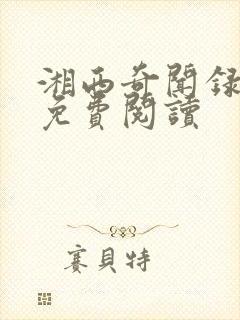 湘西奇聞録
免費閱讀
賽貝特